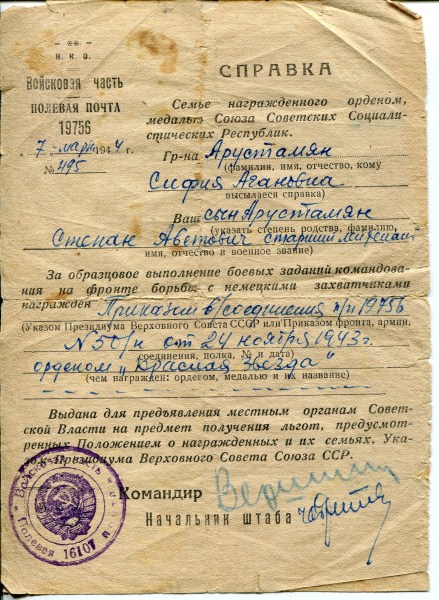 Н. К. О.
Войсковая часть
ПОЛЕВАЯ ПОЧТА
19756
7 марта 1944 г.
№ 495
СПРАВКА
Семье награжденного орденом,
медалью Союза Советских Социали-
стических Республик.
Гр-на Арустамян
(фамилия, имя, отчество, кому
София Агановна
высылается справка)
Ваш сын Арустамян
(указать степень родства, фамилию,
Степан Аветович старший
имя, отчество и военное звание)
За образцовое выполнение боевых заданий командова-
ния на фронте борьбы с немецкими захватчиками
награжден Приказом в/соединения п/п 19756
(Указом Президиума Верховного Совета СССР или Приказом фронта, армии,
N 50/н от 24 ноября 1943 г.
соединения, полка, № и дата)
орденом „Красная Звезда"
(чем награжден: орденом, медалью и их название)
Выдана для предъявления местным органам Совет-
ской Власти на предмет получения льгот, предусмот-
ренных Положением о награжденных и их семьях, Ука-
Президиума Верховного Совета Союза ССР.
Командир
Начальник штаба
Войсковая часть
Полевая 16107 п.